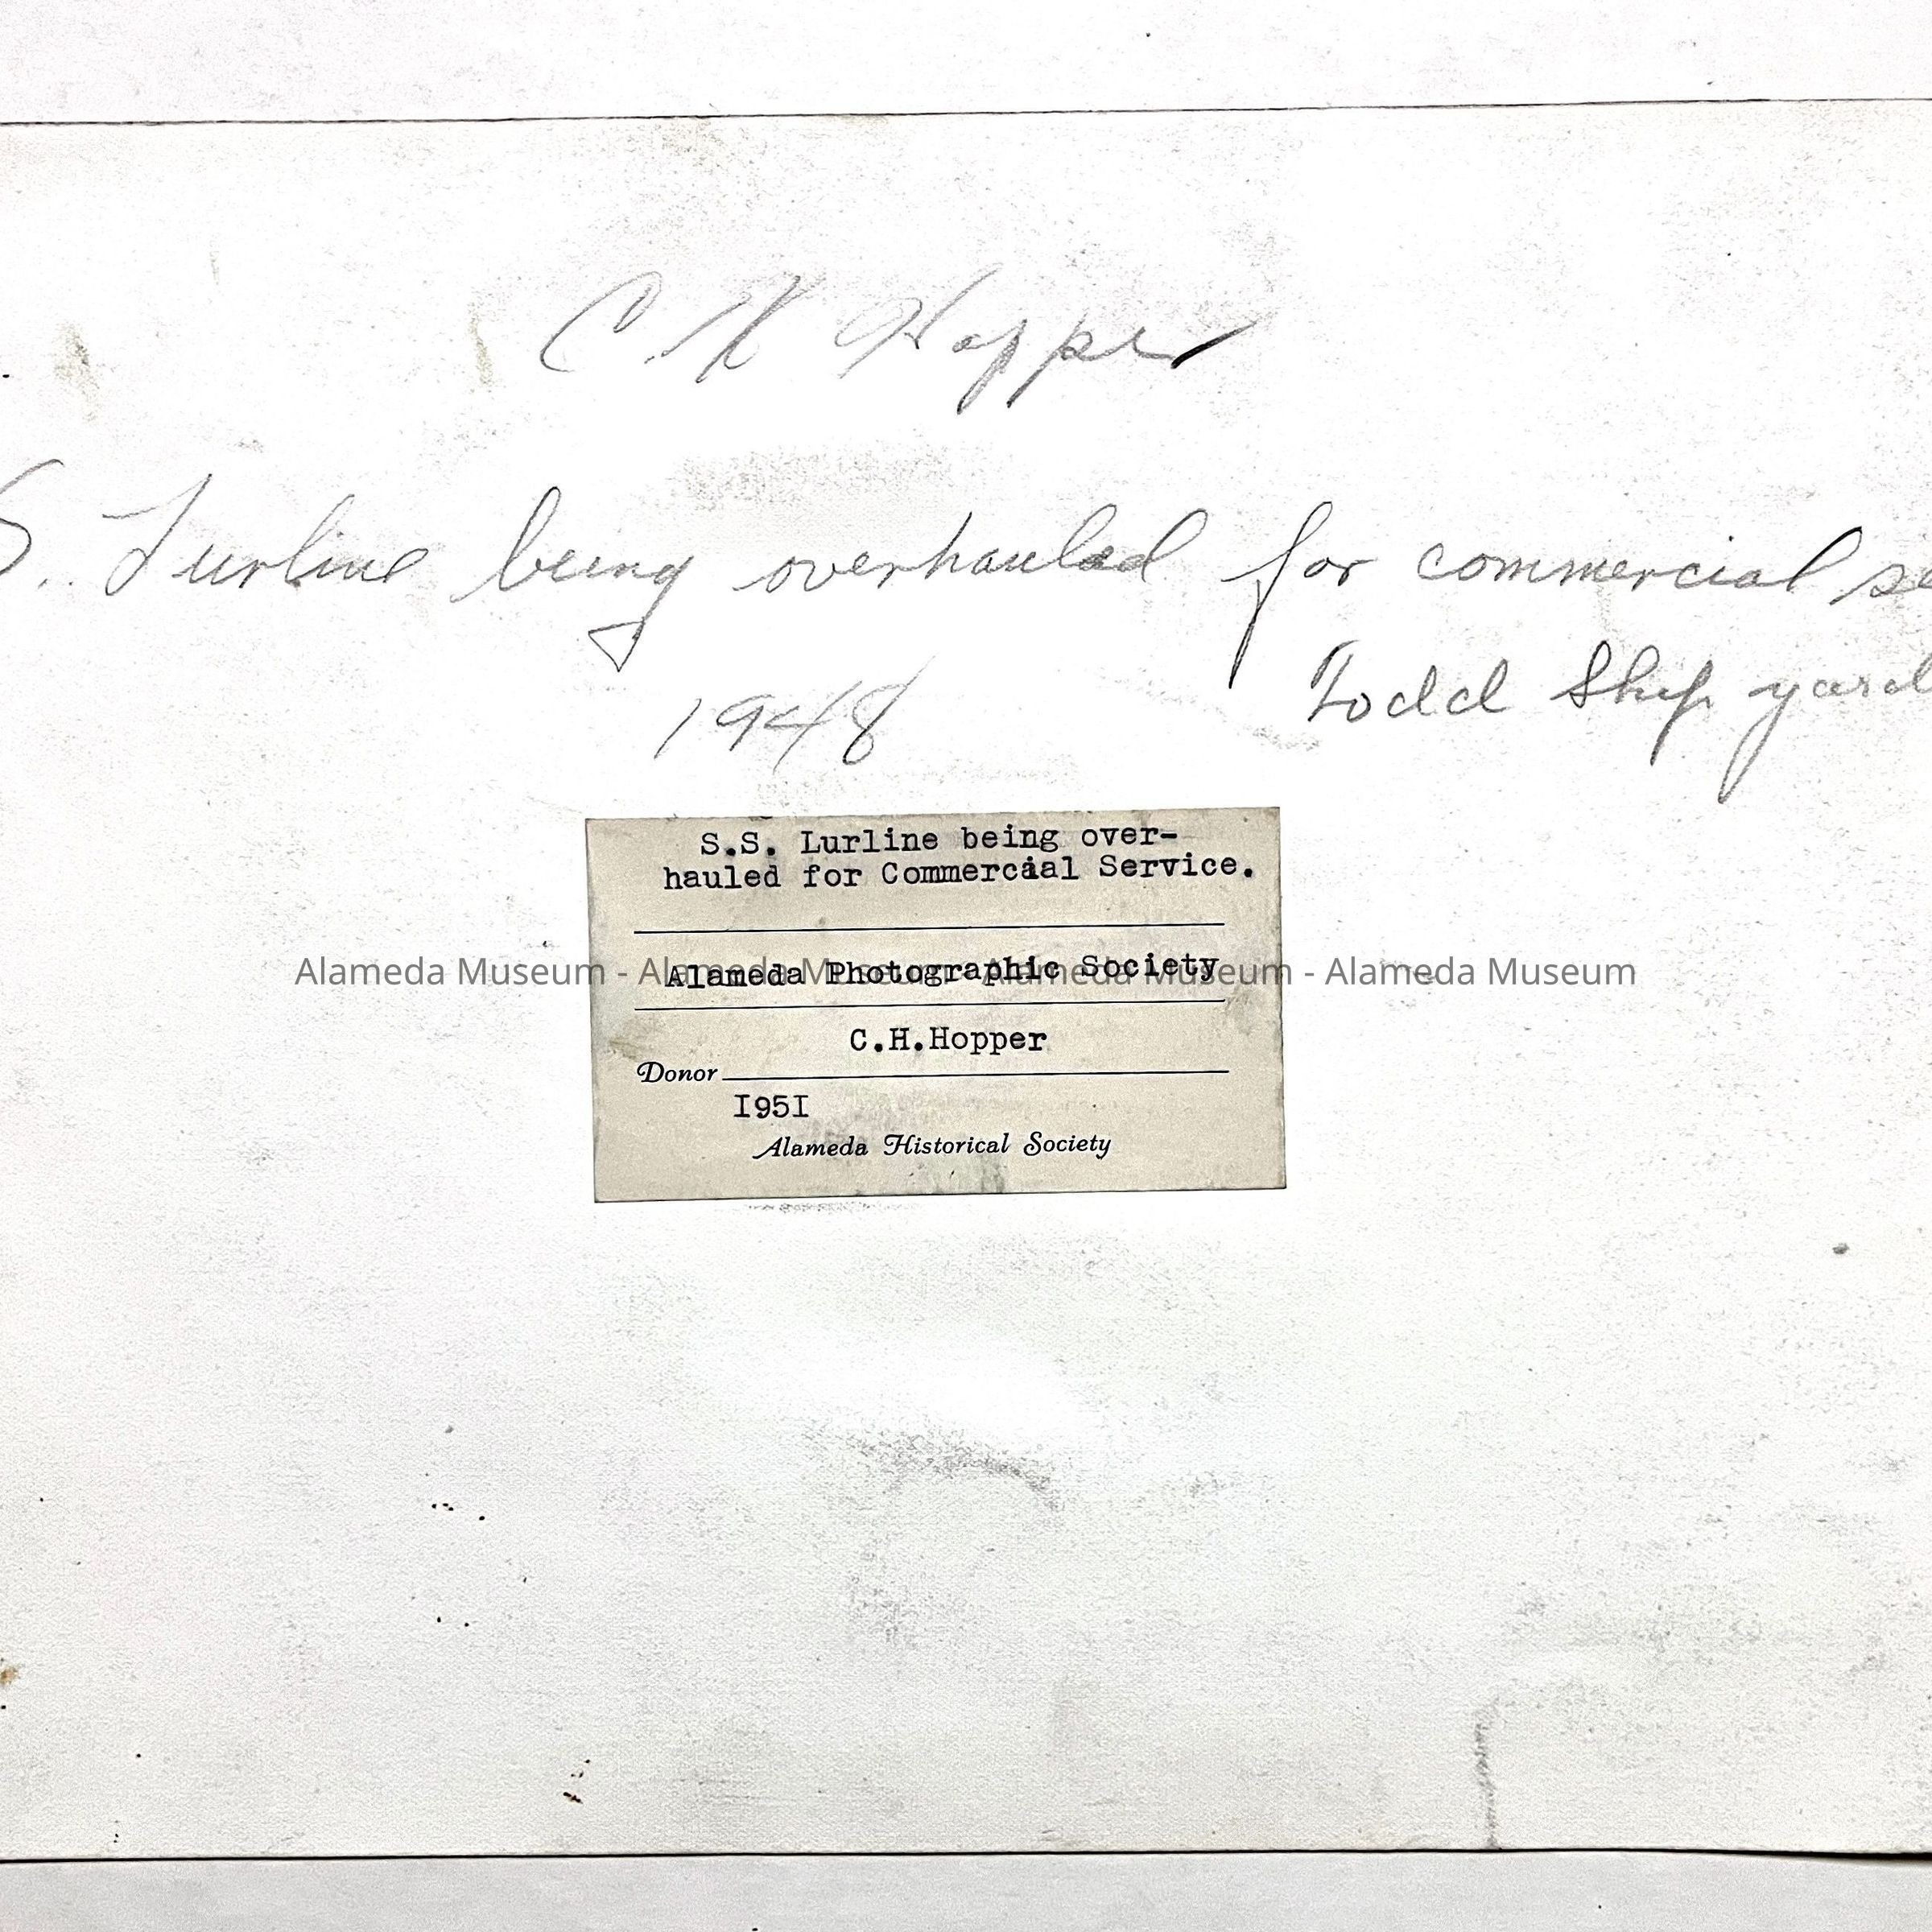 C. H Hopper
S. Lurline being overhauled for commercial se
1948
Todd Ship yard
S.S. Lurline being over-
hauled for Commercial Service.
Alameda Photographic Society
Alameda Museum - Alameda Museum - Alameda Museum - Alameda Museum
C.H.Hopper
Donor
I95I
Alameda Historical Society